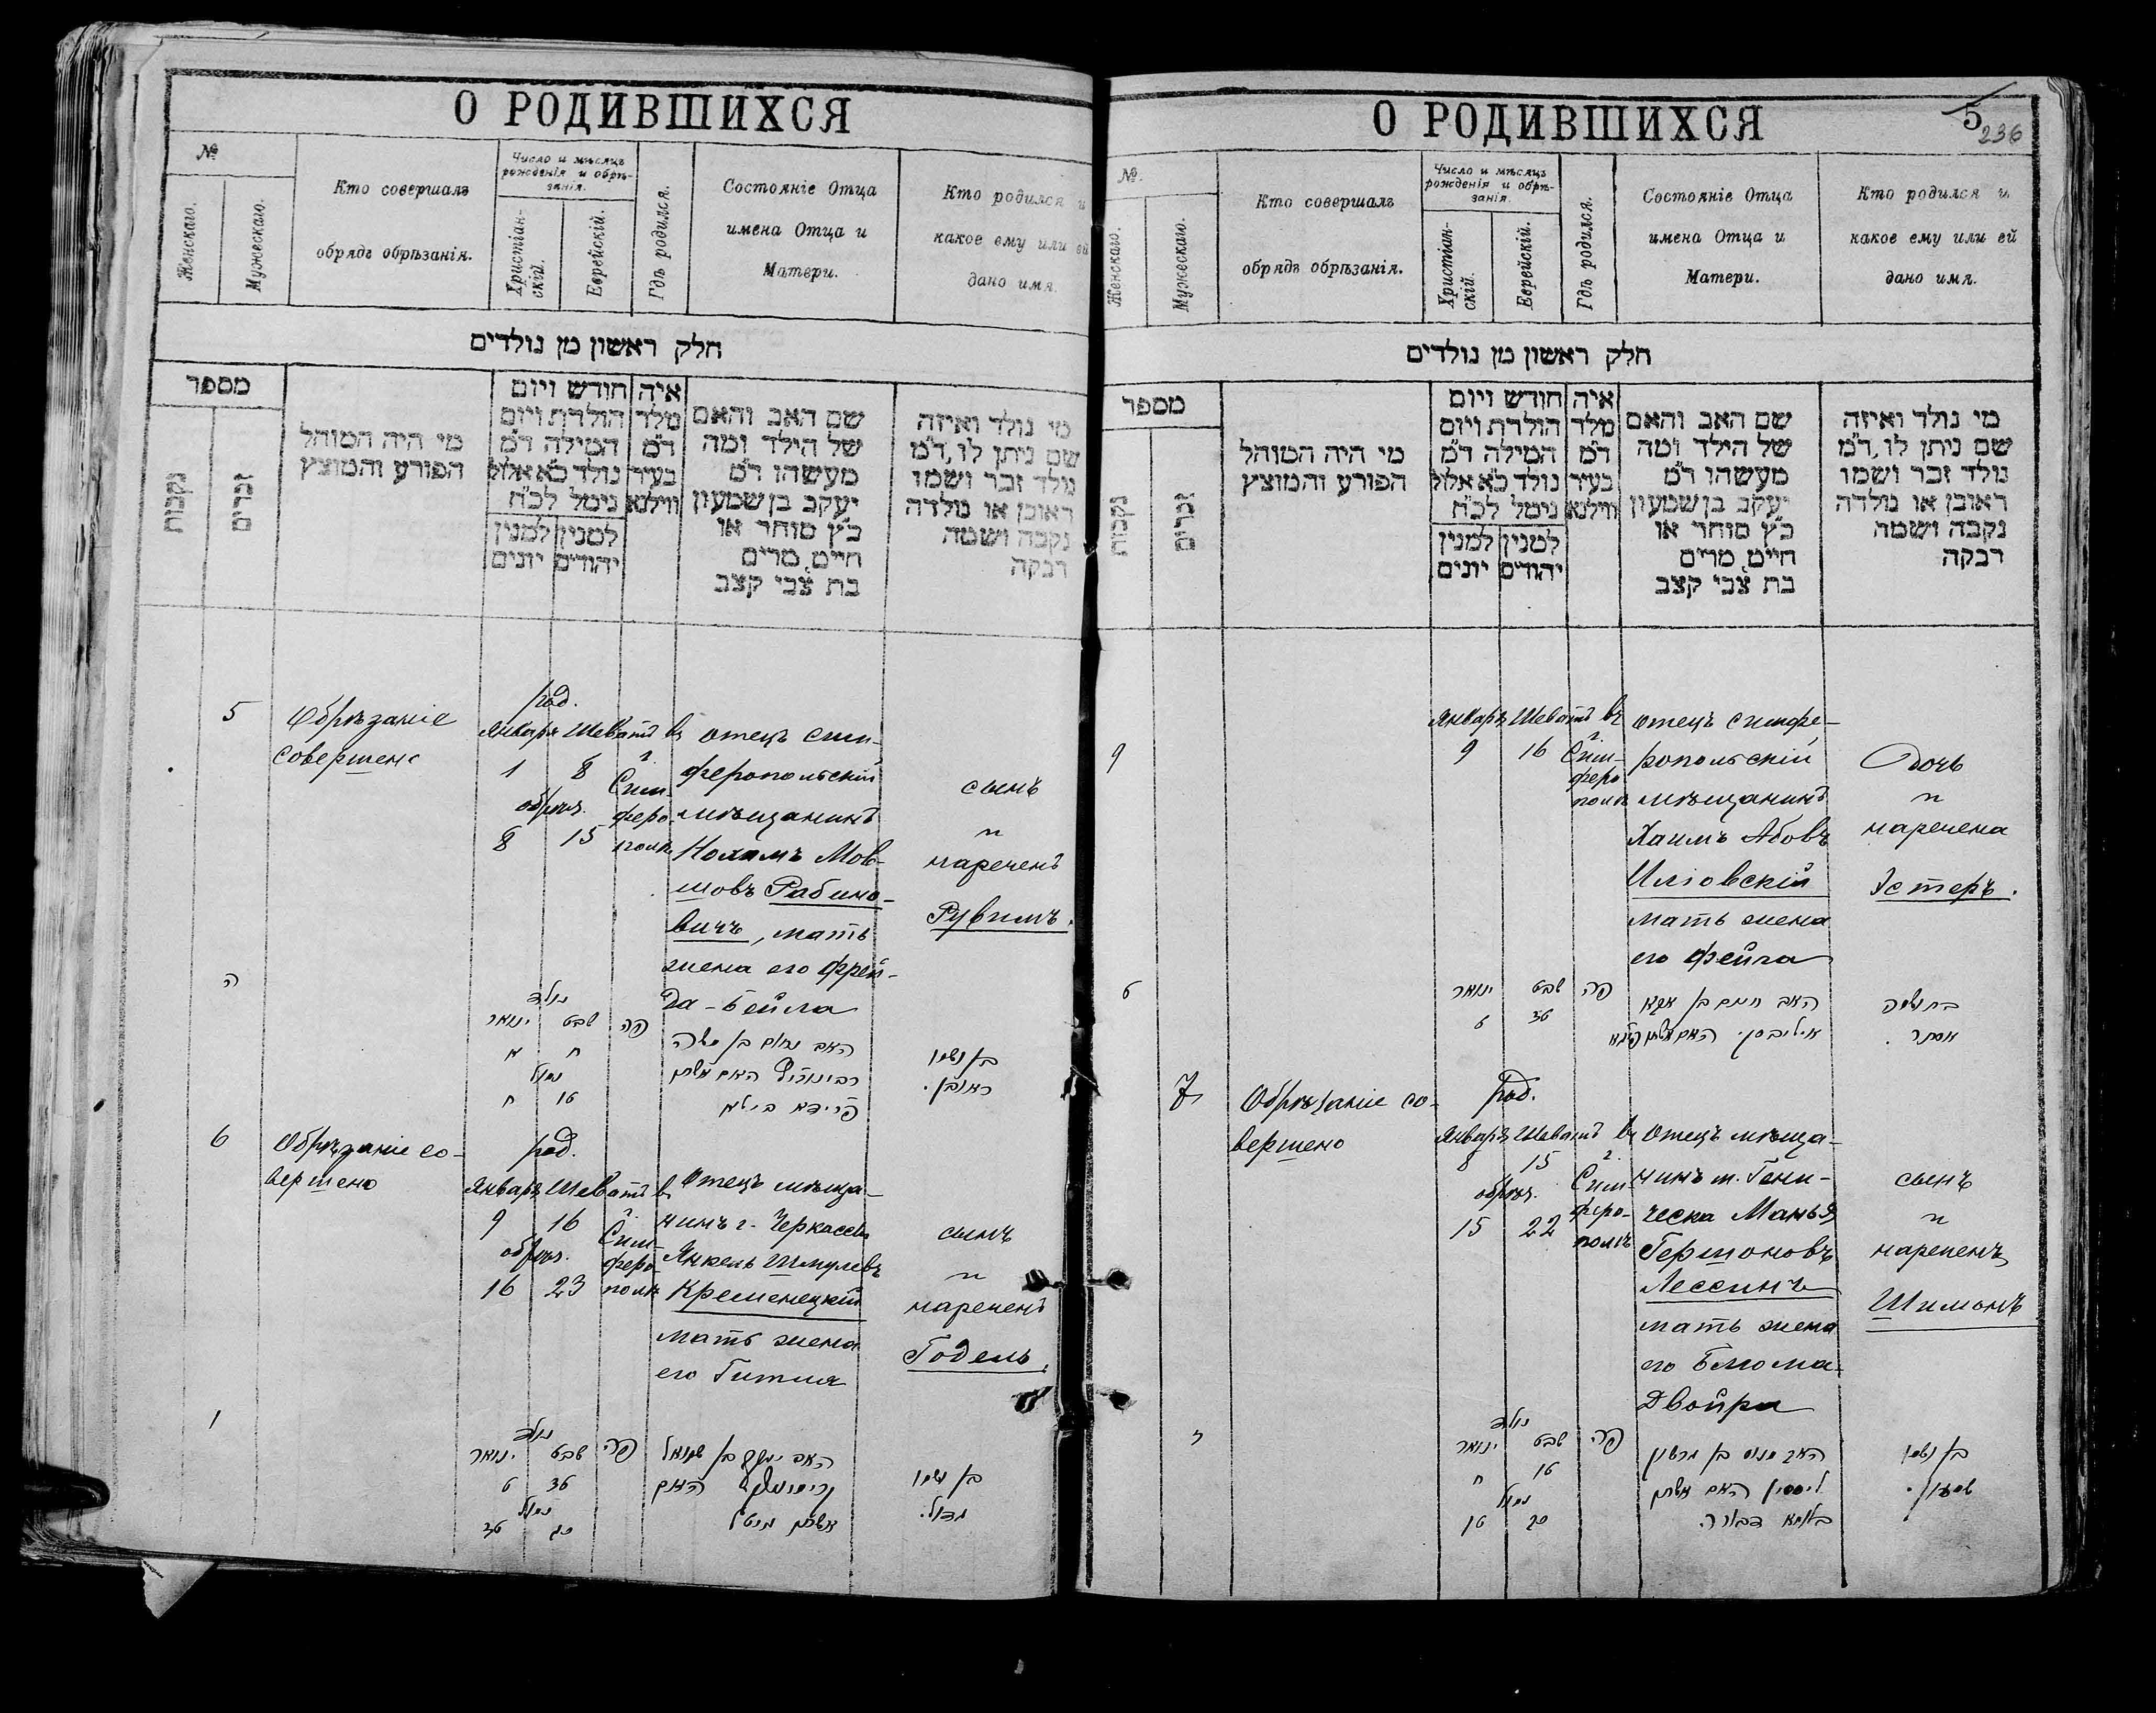 О РОДИВШИХСЯ
№
Женскаго.
Мужескаго.
Кто совершалъ
обрядъ обрѣзанія.
Число и мѣсяцъ
рожденія и обрѣ-
занія.
Христіан-
скій.
Еврейскій.
Гдѣ родился.
Состояніе Отца
имена Отца и
Матери.
Кто родился и
какое ему или ей
дано имя.
חלק ראשון מן נולדים
מספר
נקבות
זכרים
מי היה המוהל
הפורע והמוצץ
חודש ויום
הולדת ויום
המילה ד"מ
נולד כ"א אלול
נימל לכ"ח
למנין למנין
יהודים יונים
איה
מלד
ד"מ
בעיר
ווילנא
שם האב והאם
של הילד ומה
מעשהו ד"מ
יעקב בן שמעון
כ"ץ סוחר או
חייט, מרים
בת צבי קצב
מי נולד ואיזה
שם ניתן לו, ד"מ
נולד זכר ושמו
ראובן או נולדה
נקבה ושמה
רבקה
5
Обрѣзаніе
совершено
род.
Январь Шеватъ
1 8
обрѣз.
8 15
въ
г.
Сим-
феро-
полѣ
отецъ сим-
феропольскій
мѣщанинъ
Нохимъ Мов-
шовъ Рабино-
вичъ, мать
жена его Фрей-
да-Бейла
сынъ
и
нареченъ
Рувимъ.
ה
נולד
ינואר שבט
א ח
נימול
ח טו
פה
האב נחום בן משה
רבינוביץ האם אשתו
פריידא ביילא
בן ושמו
ראובן.
6
Обрѣзаніе со-
вершено
род.
Январь Шеватъ
9 16
обрѣз.
16 23
въ
г.
Сим-
феро-
полѣ
Отецъ мѣща-
нинъ г. Черкассы
Янкель Шмулевъ
Кременецкій
мать жена
его Гитля
сынъ
и
нареченъ
Годель.
ו
נולד
ינואר שבט
ט טז
נימול
טז כג
פה
האב יעקב בן שמואל
קרימינצקי האם
אשתו גיטל
בן ושמו
גדול.
О РОДИВШИХСЯ
5
236
№.
Женскаго.
Мужескаго.
Кто совершалъ
обрядъ обрѣзанія.
Число и мѣсяцъ
рожденія и обрѣ-
занія.
Христіан-
скій.
Еврейскій.
Гдѣ родился.
Состояніе Отца
имена Отца и
Матери.
Кто родился и
какое ему или ей
дано имя.
חלק ראשון מן נולדים
מספר
נקבות
זכרים
מי היה המוהל
הפורע והמוצץ
חודש ויום
הולדת ויום
המילה ד"מ
נולד כ"א אלול
נימל לכ"ח
למנין למנין
יהודים יונים
איה
מלד
ד"מ
בעיר
ווילנא
שם האב והאם
של הילד ומה
מעשהו ד"מ
יעקב בן שמעון
כ"ץ סוחר או
חייט, מרים
בת צבי קצב
מי נולד ואיזה
שם ניתן לו, ד"מ
נולד זכר ושמו
ראובן או נולדה
נקבה ושמה
רבקה
9
Январь Шеватъ
9 16
въ
г.
Сим-
феро
полѣ
отецъ симфе-
ропольскій
мѣщанинъ
Хаимъ Абовъ
Иліовскій
мать жена
его Фейга
Дочь
и
наречена
Эстеръ.
ט
ינואר שבט
ט טז
פה
האב חיים בן אבא
האם אשתו פייגא
בת ושמה
אסתר.
7
Обрѣзаніе со-
вершено
род.
Январь Шеватъ
8 15
обрѣз.
15 22
въ
г.
Сим-
феро-
полѣ
Отецъ мѣща-
нинъ м. Гени-
ческа Манья
Гершоновъ
Лессинъ
мать жена
его Блюма-
Двойра
сынъ
и
нареченъ
Шимонъ
ז
נולד
ינואר שבט
ח טו
נימול
טו כב
פה
האב מנוס בן גרשון
ליססין האם אשתו
בלומא דבורה.
בן ושמו
שמעון.